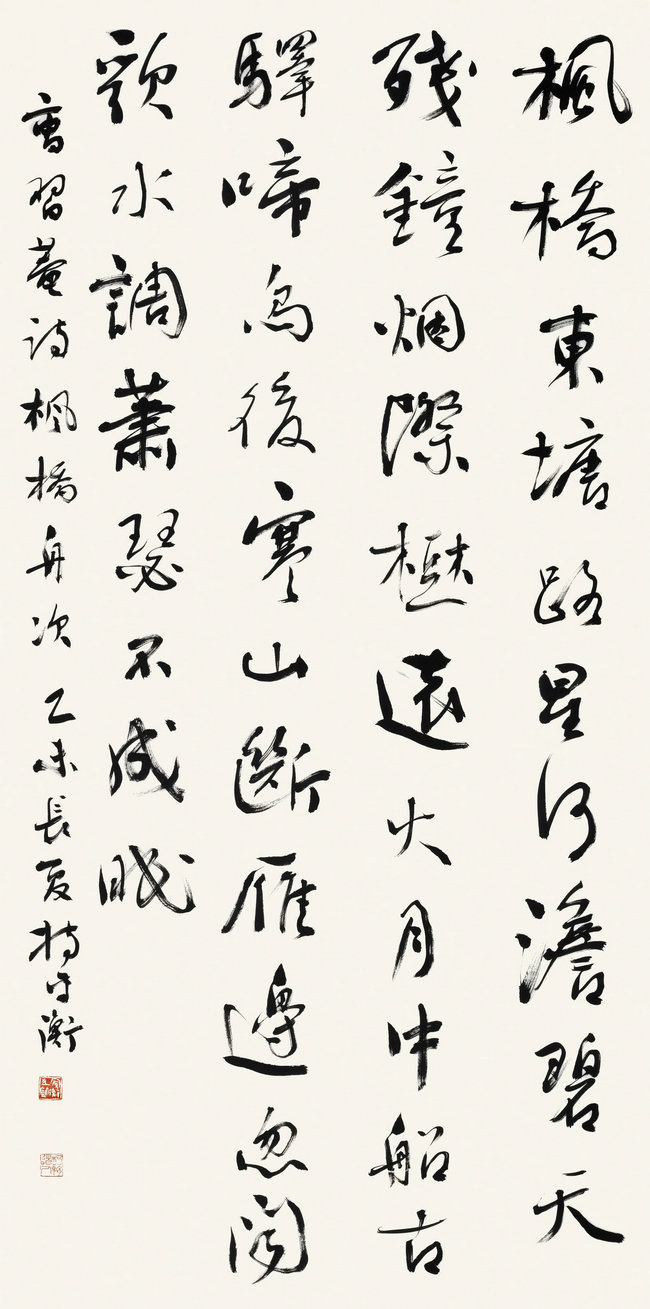 楓橋東塘路星河澹碧天
殘鐘烟際樾遠火月中船古
驛啼烏後寒山斷雁邊忽聞
歌水調蕭瑟不成眠
曹習菴詩楓橋舟次 乙未長夏